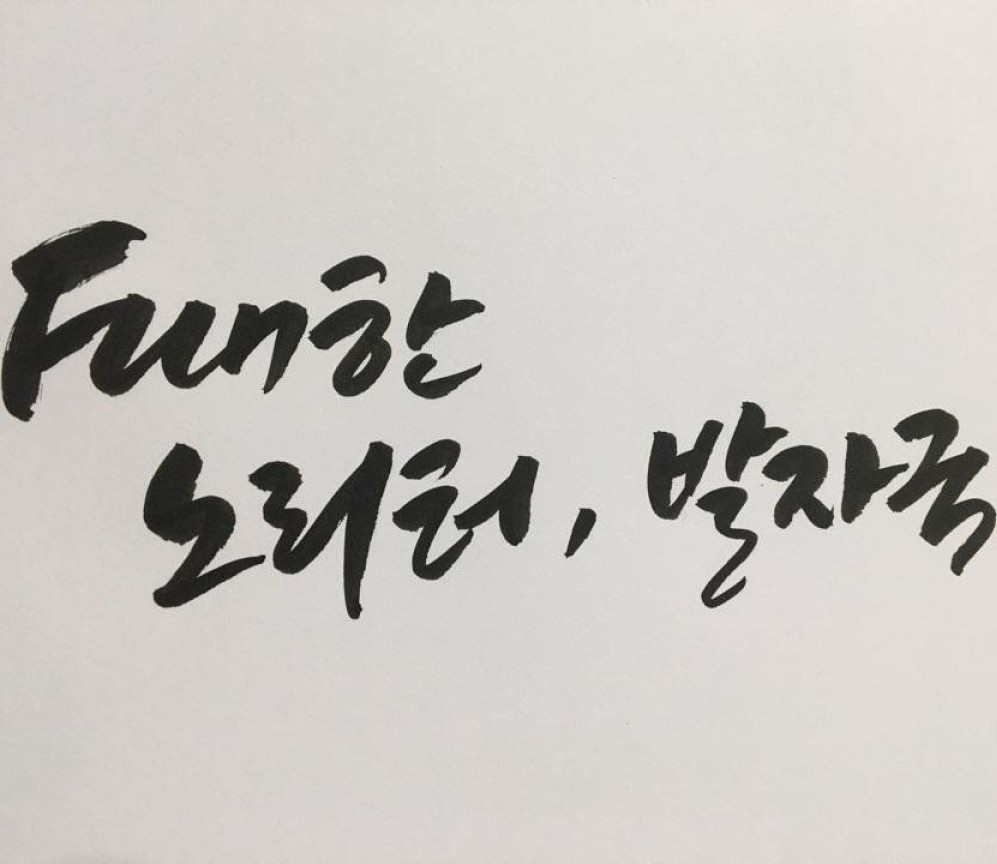 Fun한
노리터, 발자국